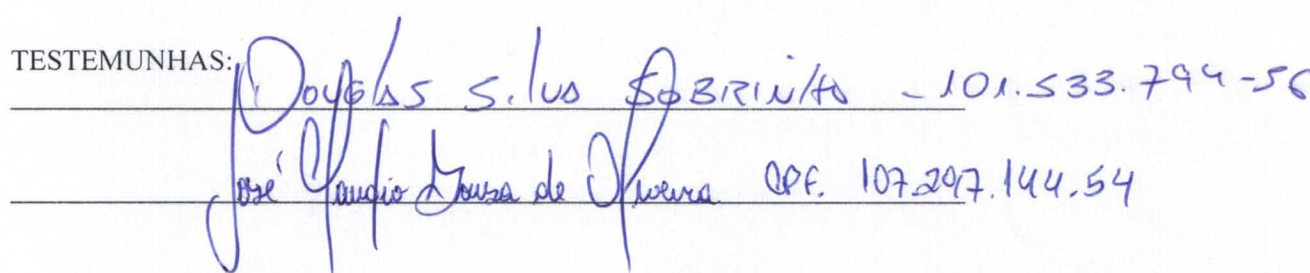 TESTEMUNHAS: Douglas Silva Sobrinho - 101.533.794-56
José Claudio Souza de Oliveira CPF. 107.297.144.54